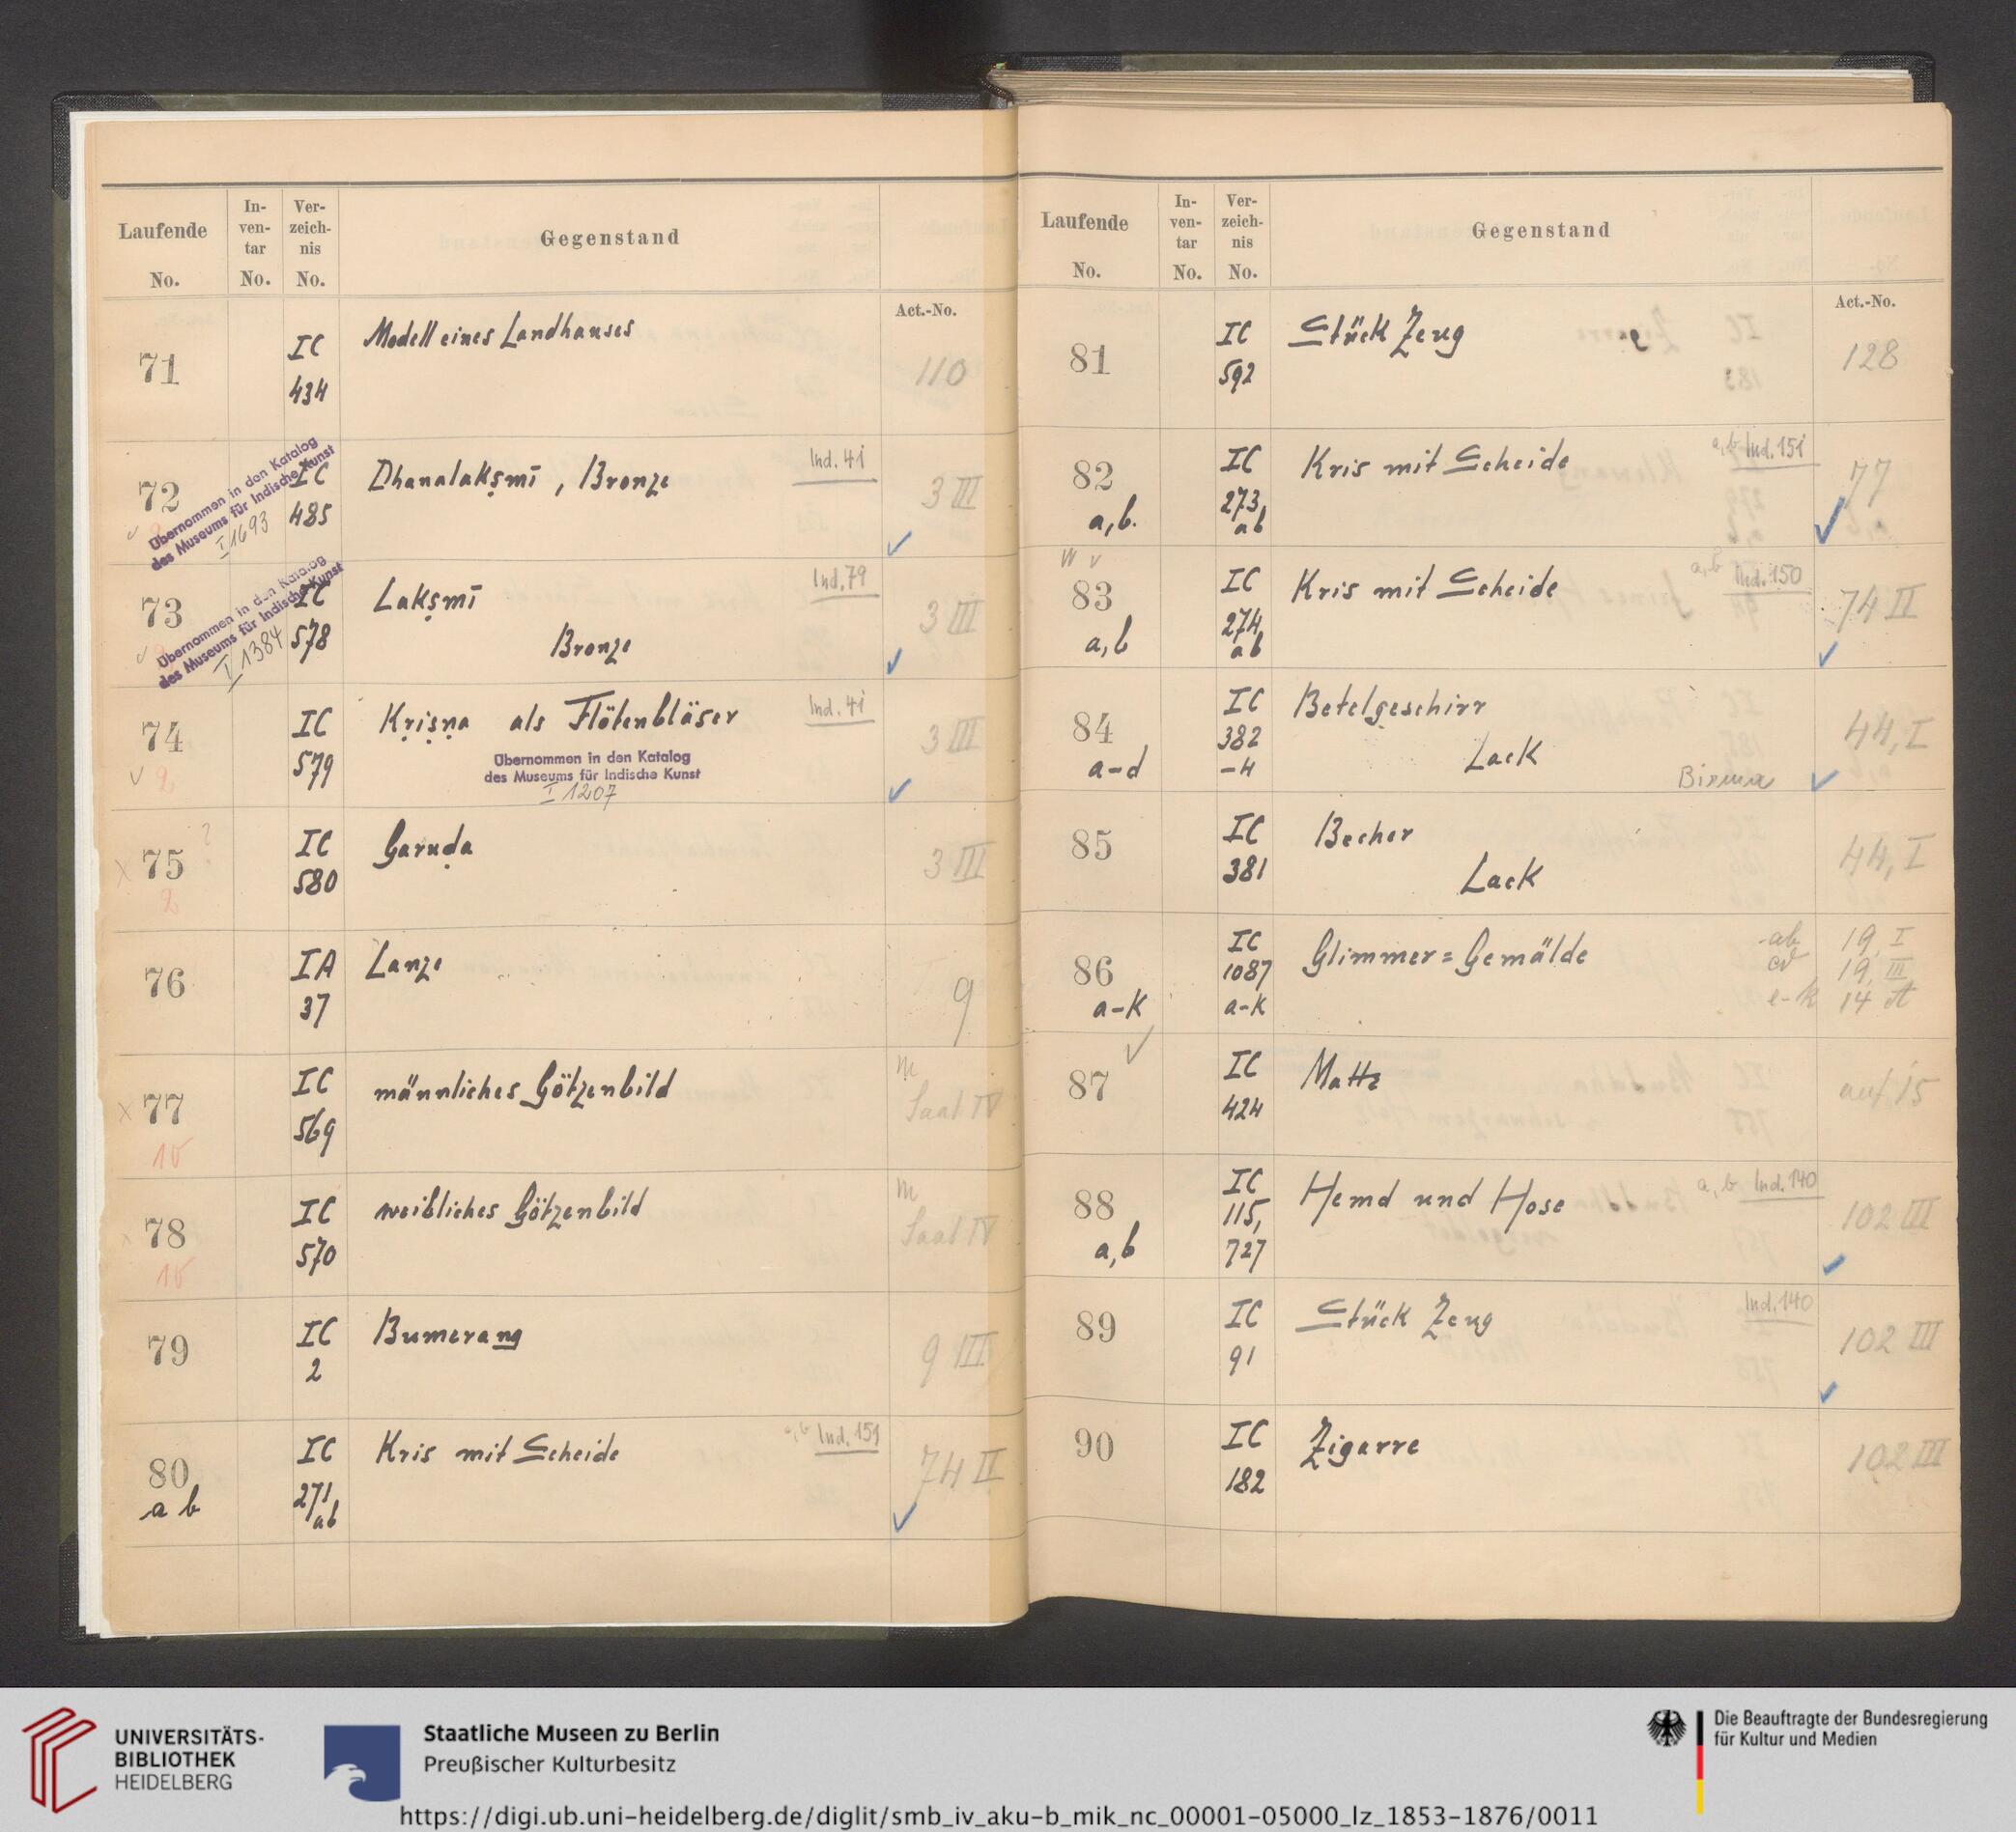 Laufende
No.
In-
ven-
tar
No.
Ver-
zeich-
nis
No.
Gegenstand
Act.-No.
71
IC
434
Modell eines Landhauses
110
72
IC
485
Dhanalakṣmī, Bronze
Ind. 41
3 III
Übernommen in den Katalog
des Museums für Indische Kunst
I 1693
73
IC
578
Lakṣmī
Bronze
Ind. 79
3 III
Übernommen in den Katalog
des Museums für Indische Kunst
I 1384
74
IC
579
Kṛiṣṇa als Flötenbläser
Ind. 41
3 III
Übernommen in den Katalog
des Museums für Indische Kunst
I 1207
75
?
IC
580
Garuḍa
3 III
76
IA
37
Lanze
9
77
IC
569
männliches Götzenbild
Saal IV
78
IC
570
weibliches Götzenbild
Saal IV
79
IC
2
Bumerang
9 III
80
a b
IC
271
ab
Kris mit Scheide
a, b Ind. 151
74 II
Laufende
No.
In-
ven-
tar
No.
Ver-
zeich-
nis
No.
Gegenstand
Act.-No.
81
IC
592
Stück Zeug
128
82
a, b.
IC
273
ab
Kris mit Scheide
a, b Ind. 151
77
83
a, b
IC
274
ab
Kris mit Scheide
a, b Ind. 150
74 II
84
a-d
IC
382
-4
Betelgeschirr
Lack
Birma
44, I
85
IC
381
Becher
Lack
44, I
86
a-k
IC
1087
a-k
Glimmer=Gemälde
ab 19, I
cd 19, III
e-k 14
87
IC
424
Matte
auf 15
88
a, b
IC
115,
727
Hemd und Hose
a, b Ind. 140
102 III
89
IC
91
Stück Zeug
Ind. 140
102 III
90
IC
182
Zigarre
102 III
UNIVERSITÄTS-
BIBLIOTHEK
HEIDELBERG
Staatliche Museen zu Berlin
Preußischer Kulturbesitz
Die Beauftragte der Bundesregierung
für Kultur und Medien
https://digi.ub.uni-heidelberg.de/diglit/smb_iv_aku-b_mik_nc_00001-05000_lz_1853-1876/0011